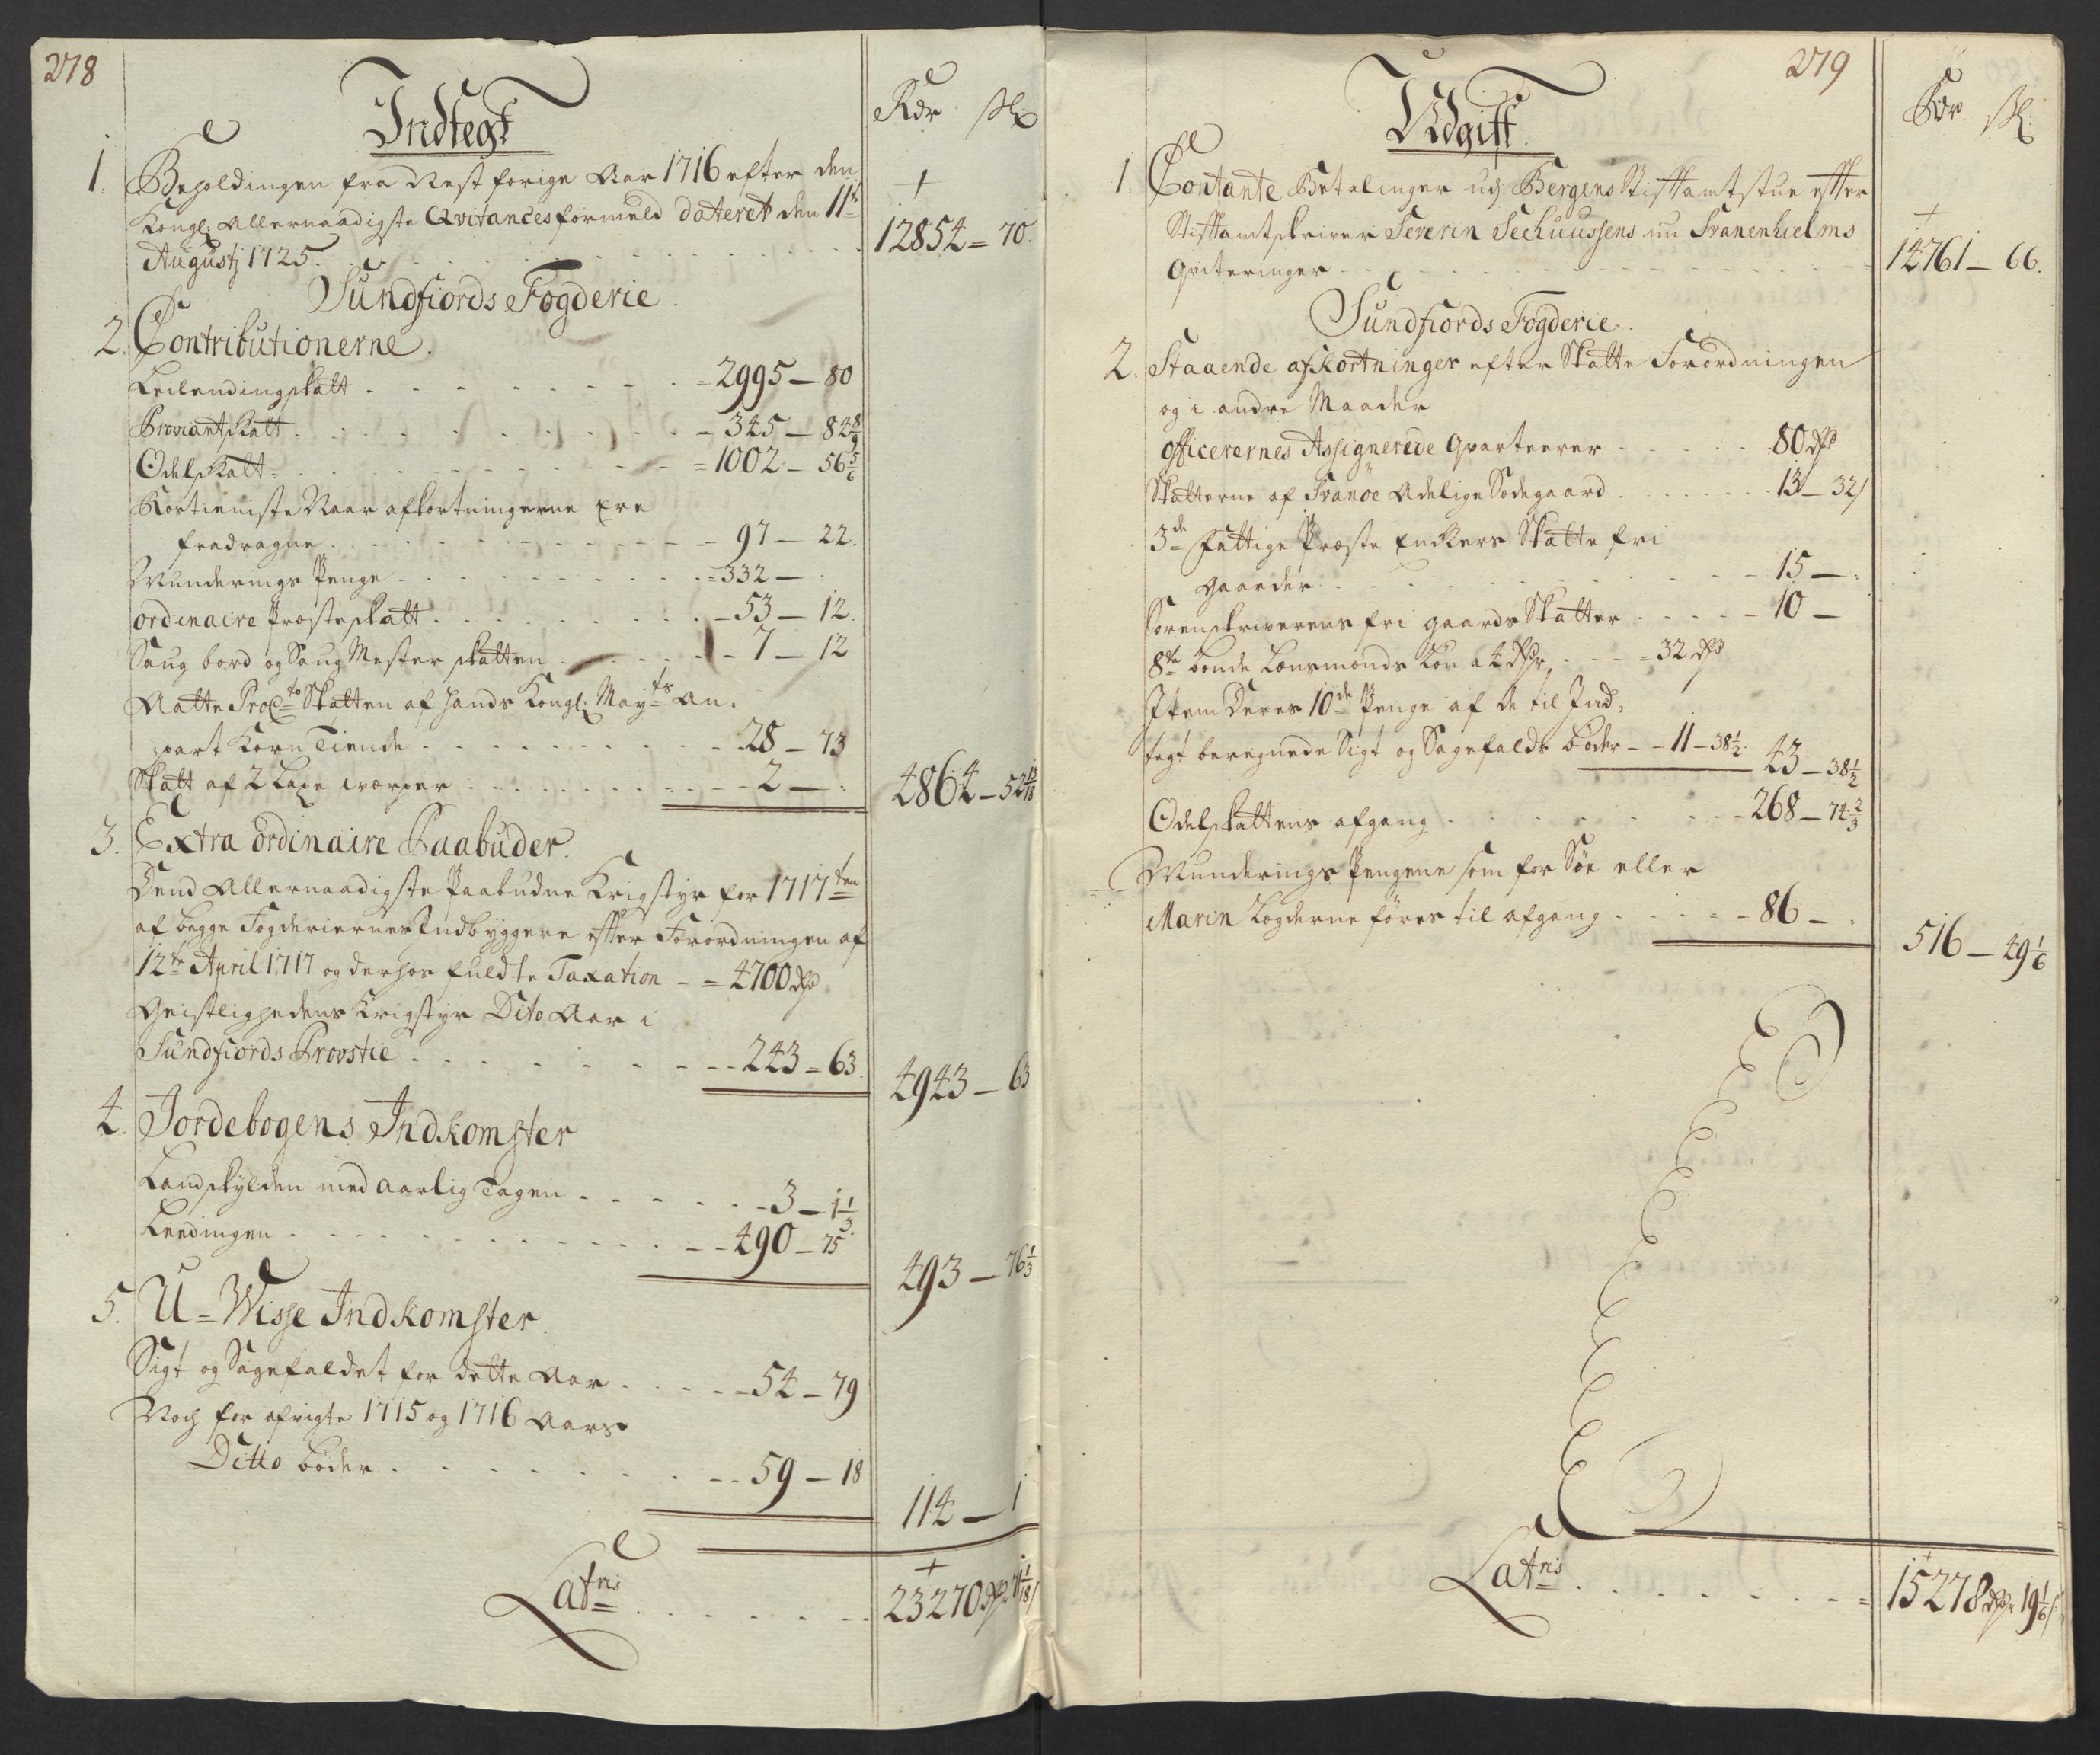 278
Indtegt
Rdr: sk
1. Beholdingen fra Nest forige Aar 1716 efter den
Kongl: Allernaadigste Qvitances formeld dateret den 11te
Augustj 1725. 12854 = 70.
Sundfiords Fogderie.
2. Contributionerne.
Leilendingskatt = 2995 – 80
Proviantskatt – 345 – 84 8/9
Odelskatt = 1002 – 56 5/6
fradragne – 97 – 22.
Munderings Penge = 332 – :
ordinaire Præsteskatt – 53 – 12.
Saug bord og Saug Mester skatten – 7 – 12
Natte Proc:to Skatten af hands Kongl: Mayts An-
part Korn Tiende 28 – 73
Skatt af 2 Laxe værper 2 – : 4864 – 52 13/18
3. Extra ordinaire Paabuder.
Dend Allernaadigste Paabudne Krigstyr for 1717ten
af begge Fogderiernes Indbyggere efter Forordningen af
12te April 1717 og derhos fuldte Taxation = 4700 rdr
Geistlighedens Krigstyr Dito Aar i
Sundfiords Provstie 243 = 63. 4943 – 63
4. Jordebogens Indkomster
Landskylden med aarlig Tagen 3 – 1 1/3
Leedingen 490 – 75 493 – 76 1/3
5. U=Wisse Indkomster
Sigt og Sagefaldet for dette Aar 54 – 79
Noch for afvigte 1715 og 1716 Aars
Ditto bøder 59 – 18 114 – 1
Lateris 23270 rdr 71 1/18 s
279
Udgift.
Rdr sk:
1. Contante Betalinger udj Bergens Stifftamtstue effter
Stifftamtskriver Severin Seehuussens nu Svanenhielms
Qviteringer 14761 – 66.
Sundfiords Fogderie.
2. Staaende afkortninger efter Skatte Forordningen
og i andre Maader
officerernes Assignerede Qvarteerer 80 rdr
Skatterne af Svanöe Adelige Sædegaard 13 – 32 s
3de fattige Præste Enckers Skatte fri
Gaarder 15 – :
Sorenskriverens fri gaards Skatter 10 –
8te bonde Lensmænds Løn a 4 rdr = 32 rdr
Item Deres 10de Penge af de til Ind-
tegt beregnede Sigt og Sagefalds bøder – 11 – 38 1/2. 43 – 38 1/2
Odelskattens afgang 268 – 74 2/3
Munderings Pengene som for Søe eller
Marin Legderne føres til afgang 86 – : 516 – 49 1/6
Lateris 15278 rdr 19 1/6 s